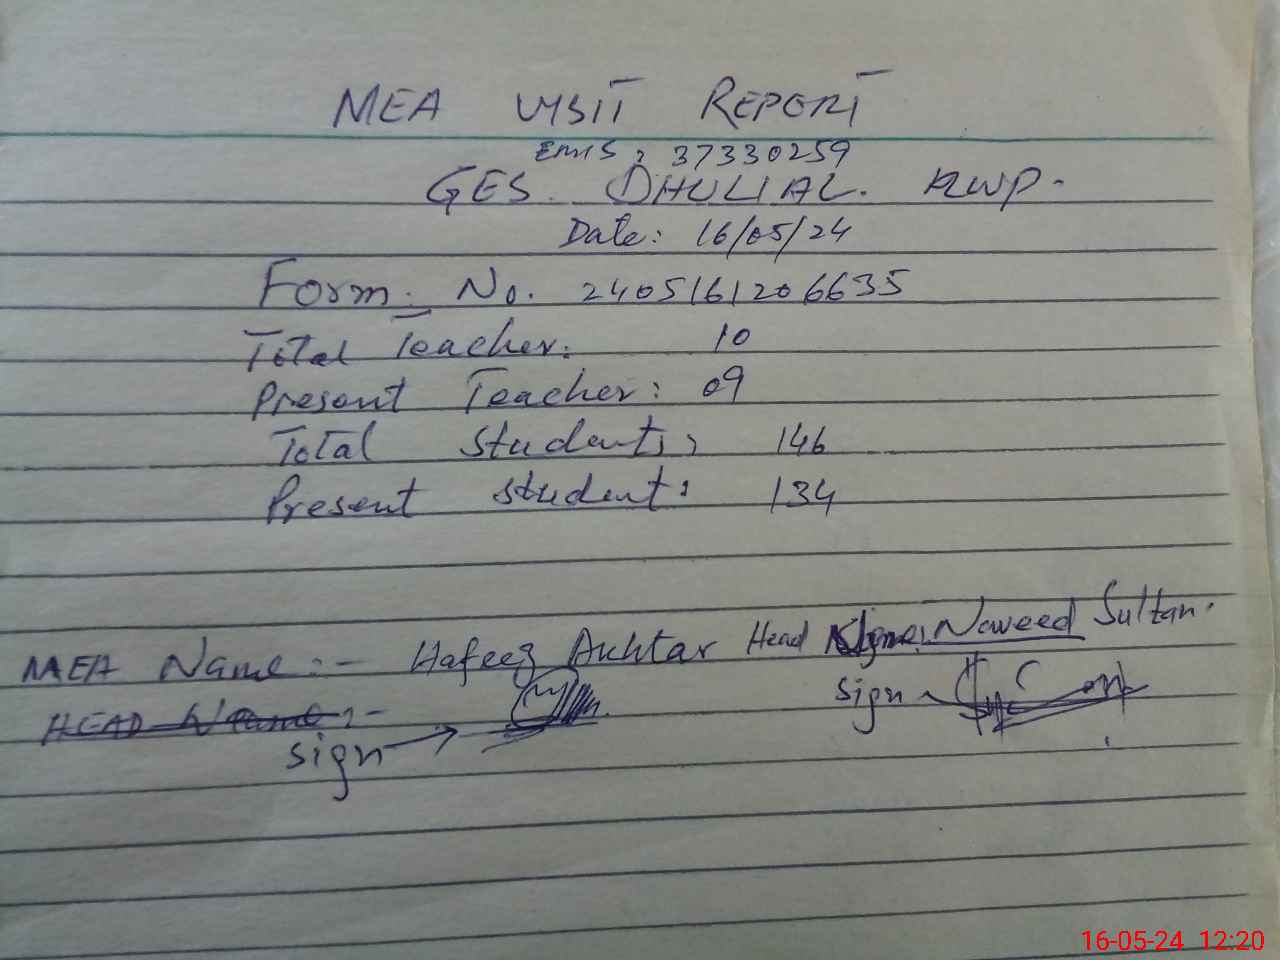 MEA VISIT REPORT
EMIS: 37330259
GES. DHULIAL. RWP.
Date: 16/05/24
Form. No. 2405161206635
Total Teacher: 10
Present Teacher: 09
Total Students: 146
Present student: 134
MEA Name:- Hafeez Akhtar Head Name: Naveed Sultan.
HEAD Name:-
sign
sign
16-05-24 12:20